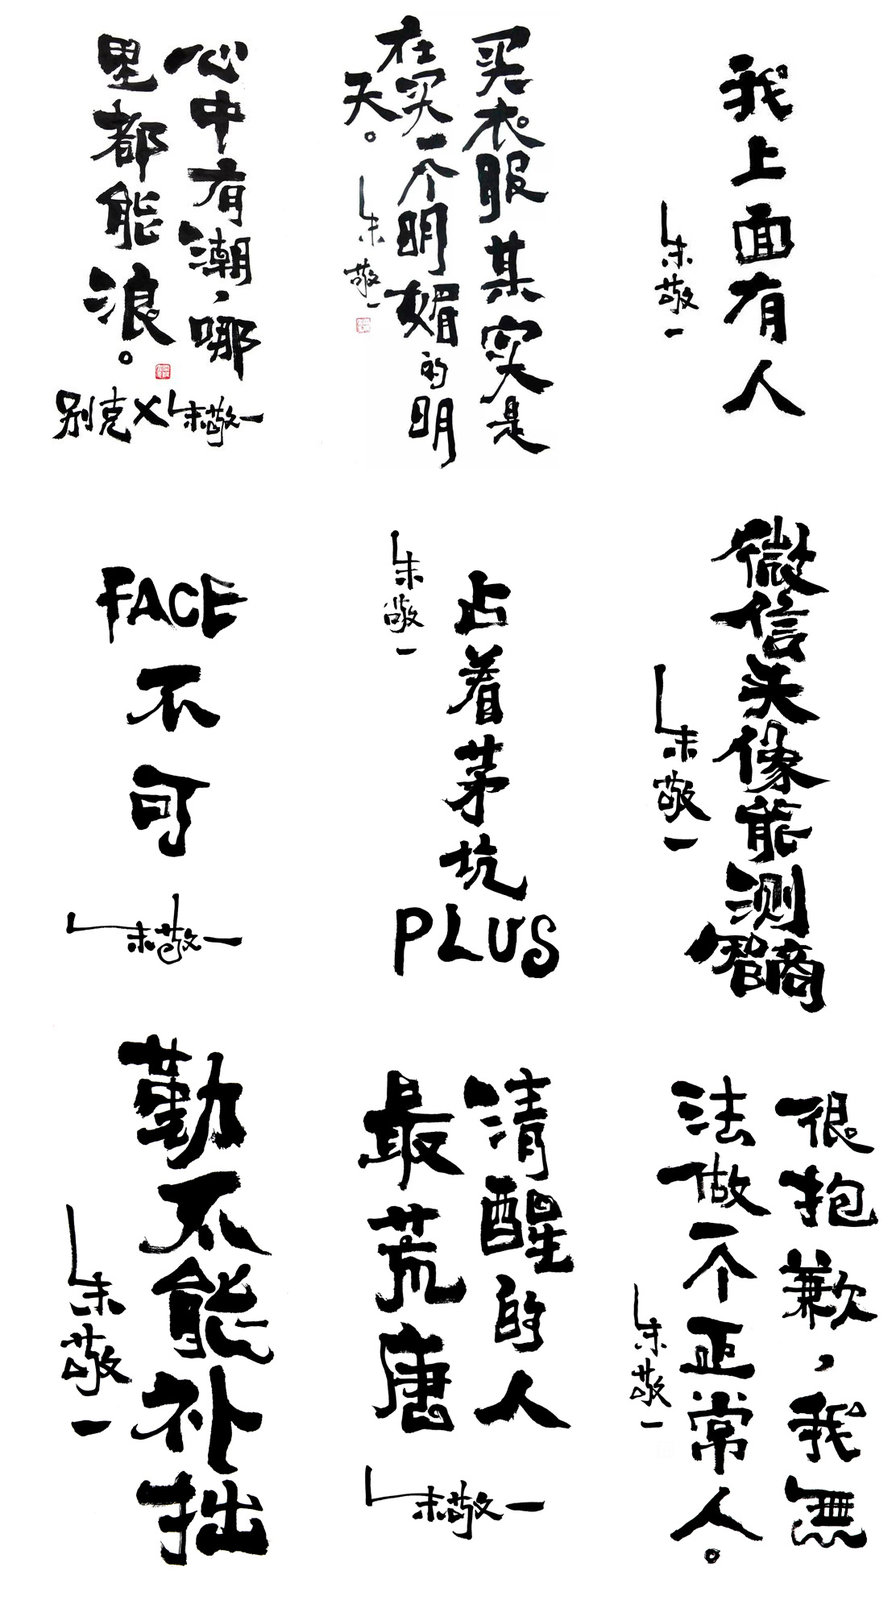 心中有潮，哪
里都能浪。
别克×朱敬一
买衣服其实是
在买一个明媚的明
天。
朱敬一
我上面有人
朱敬一
FACE
不
可
朱敬一
占着茅坑
PLUS
朱敬一
微信头像能测智商
朱敬一
勤不能补拙
朱敬一
清醒的人
最荒唐
朱敬一
很抱歉，我無
法做一个正常人。
朱敬一